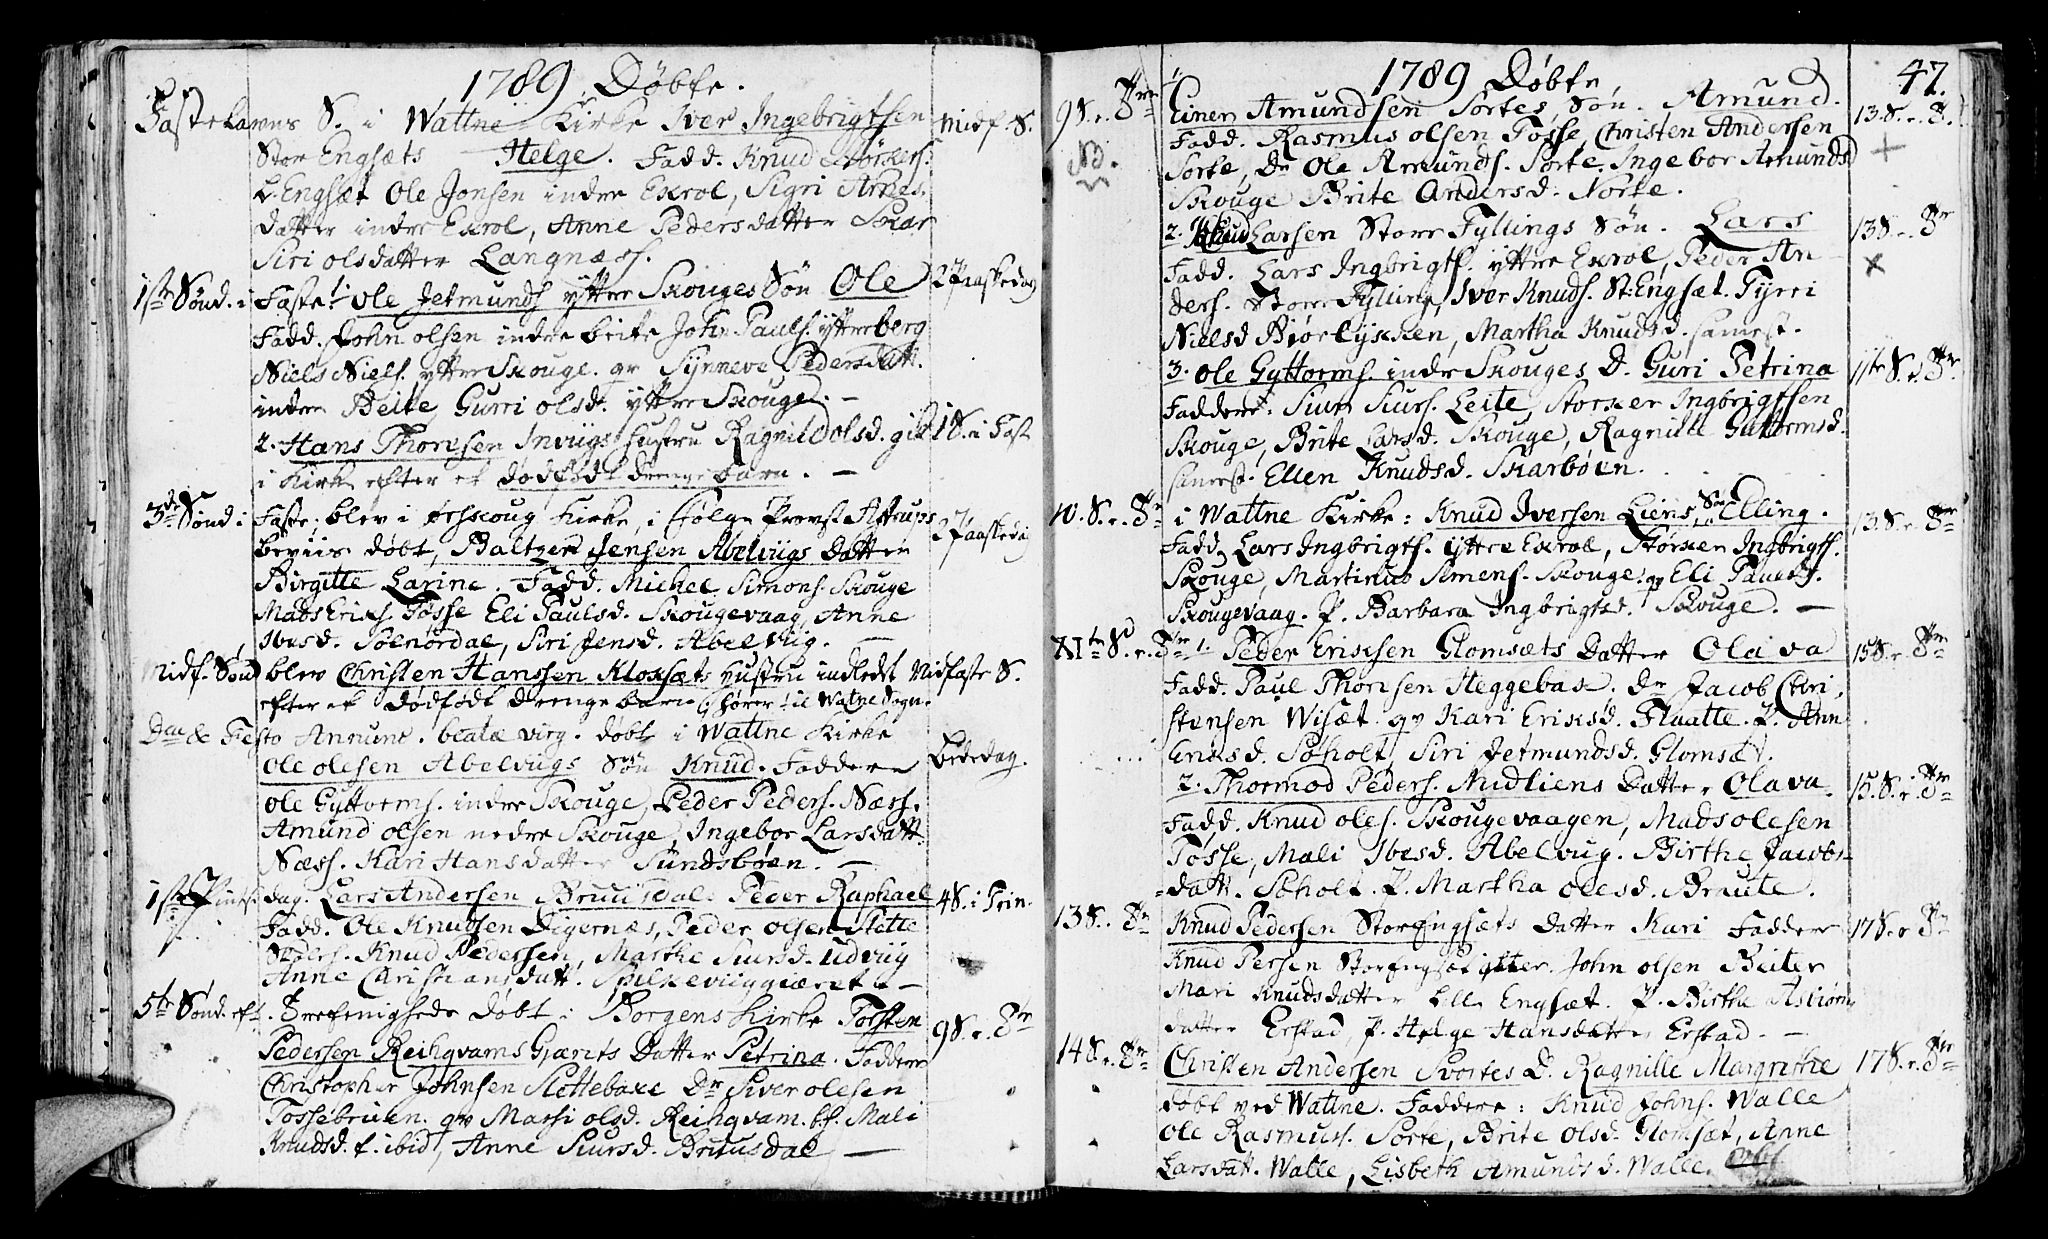 1789 Döbte.
Fastelavns S. i Wattne Kirke Iver Ingebrigtsen Midf. S.
Stor Engsæts Helge. Fadd. Knud Störkers.
L. Engsæt Ole Jonsen indre Exrol, Sigri Arnes
datter indre Exrol, Anne Pedersdatter Skar
Siri olsdatter Langnæss.
1ste Sönd. i Faste. 1. Ole Jetmunds. yttre Skouges Sön Ole 2 Paaskedag
Fadd. John olsen indre beite John Pauls. yttre berg
Niels Niels. yttre Skouge. qv Synneve Pedersdatt.
indre Beite Gurri olsd. yttre Skouge. —
2. Hans Thorsen Inviigs hustru Ragnild olsd. gik 1 S. i Fast
i Kirke efter et dödfödt drengebarn. —
3de Sönd i Faste; blev i örskoug Kirke, i Fölge Provst Astrups 2 Paaskedag
beviis döbt, Baltzer Jensen Abelviigs Datter
Birgitte Larine. Fadd. Michel Simons. Skouge
Mads Eriks. Tösse Eli Paulsd. Skougevaag, Anne
Ivesd. Solnördal, Siri Jensd. Abelviig. —
Midf. Sönd blev Christen Hanssen Kloxsæts hustru indledt Midfaste S.
efter et dödfödt drengebarn hörer til Watne Sogn.
Die Festo Annunc. beatæ virg. döbt i Wattne Kirke
ole olesen Abelvigs Sön Knud. Faddere Bededag.
ole Gyttorms. indre Skouge, Peder Peders. Næss.
Amund olsen nedre Skouge, Ingebor Larsdatt
Næss. Kari Hansdatter Sundsböen. —
1ste Pintsedag. Lars Andersen Bruusdal: Peder Raphael 4 S. i Trin.
Fadd. Ole Knudsen Digernæs, Peder olsen Slette
Knud Pedersen, Marthe Siursd. Udviig
Anne Christiansdatt. Spilkeviiggiæret. —
5te Sönd. eft. Trefenighede döbt i Borgens Kirke Torsten 9 S. e. Tr
Pedersen Reihqvams Gjærits Datter Petrina. Faddere
Christopher Johnsen Slettebaxe Dr Siver olesen
Tossebruen. qv Marsi olsd. Reihqvam. Mali
Knudsd. f. ibid, Anne Siursd. Brusdal —
1789 Döbte 47.
9 S. e. Tr 1. Einer Amundsen Sortes Sön. Amund. 13 S. e. T.
Nb. Fadd. Rasmus olsen Tosse, Christen Andersen +
Sorte, Dr Ole Amunds. Sorte. Ingebor Amundsd
Skouge Brite Andersd. Sorte.
2. Knud Larsen Store Fyllings Sön. Lars 13 S. e. Tr
Fadd. Lars Ingbrigts. yttre Exrol, Peder An- x
ders. Store Fylling, Iver Knuds. St. Engsæt. Tyrri
Nielsd Biörlyxken, Martha Knudsd. samest.
3. ole Gyttorms. indre Skouges D. Guri Petrina 11te S. e. Tr.
Faddere: Siur Siurs. Leite, Storker Ingbrigtsen
Skouge, Brite Larsd. Skouge, Ragnille Guttormsd.
samest. Ellen Knudsd. Skarböen.
10. S. e. Tr i Wattne Kirke: Knud Iversen Liens Sön Elling. 13 S. e. Tr
Fadd. Lars Ingbrigts. yttre Exrol, Störker Ingbrigts.
Skouge, Martinus Simens. Skouge. qv Eli Paulsd.
Skougevaag. P. Barbara Ingbrigtsd. Skouge. —
XIte S. e. Tr 1. Peder Ericsen Glomsæts Datter Olava 15 S. e. Tr
Fadd. Paul Thorsen Heggebax. Dr Jacob Chri-
stensen Wisæt. qv Kari Eriksd. Flaatte. P. Ann
Eriksd. Söholt, Siri Jetmundsd. Glomsæt.
2. Thormod Peders. Midliens Datter Olava. 15. S. e. Tr
Fadd. Knud oles. Skougevaagen, Mads olesen
Tosse, Mali Ivesd. Abelvig. Birthe Jacobs-
datt. Söholt. P. Martha olesd. Bruute.
13 S. e. Tr Knud Pedersen StorEngsæts datter Kari Faddere 17 S. e. Tr
Knud Persen Storengsæt John olsen Beiter
Mari Knudsdatter Lille Engsæt. P. Birthe Asbiörns
datter Erstad, P. Helge Hansdatter Erstad. —
14 S. e. Tr Christen Andersen Svortes D. Ragnille Margrethe 17 S. e. Tr
döbt ved Wattne. Faddere: Knud Johns. Walle
ole Rasmuss. Sorte, Brite olsd. Glomsæt, Anne
Larsdatt. Walle, Lisbeth Amundsd. Walle.